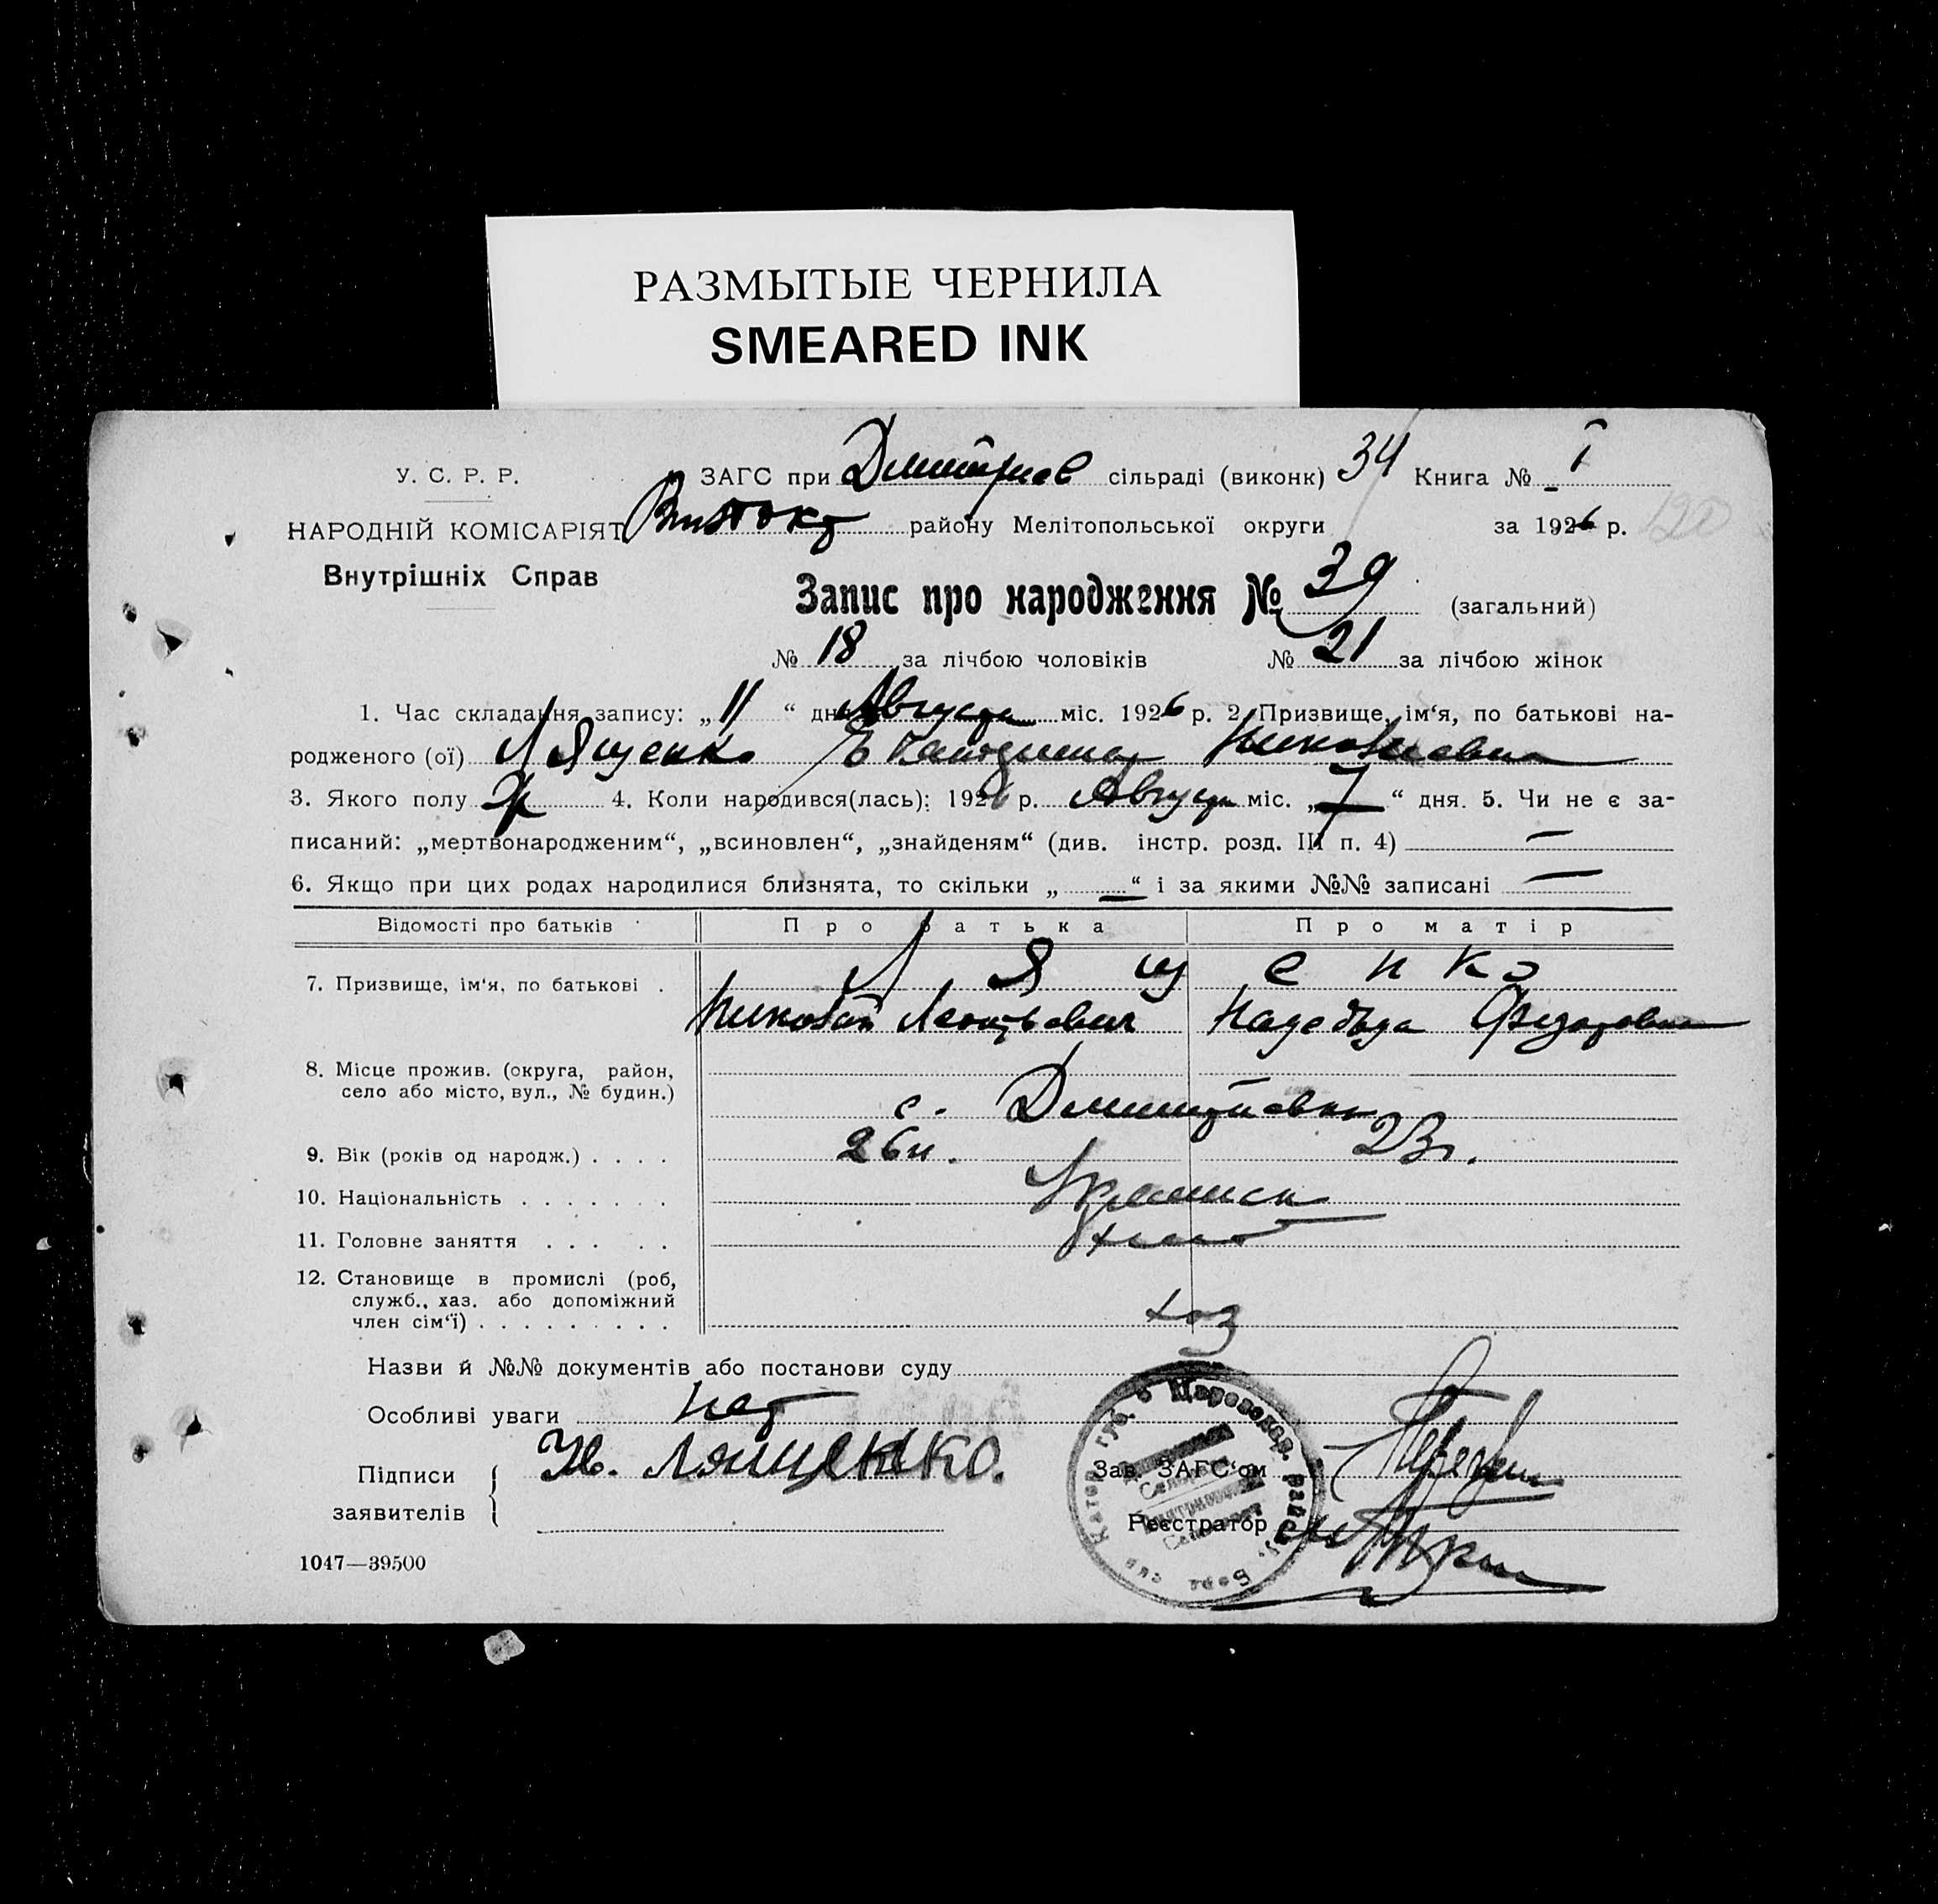 РАЗМЫТЫЕ ЧЕРНИЛА
SMEARED INK
У. С. Р. Р.
ЗАГС при Дмитриев сільраді (виконк) 34 Книга № 1
НАРОДНІЙ КОМІСАРІЯТ
району Мелітопольської округи за 1926 р.
120
Внутрішніх Справ
Запис про народження № 39 (загальний)
№ 18 за лічбою чоловіків № 21 за лічбою жінок
1. Час складання запису: „ 11 “ дня Августа міс. 1926 р. 2. Призвище, ім‘я, по батькові на-
родженого (ої) Лященко Николаевна
3. Якого полу ж 4. Коли народився(лась): 1926 р. Августа міс. „ 7 “ дня. 5. Чи не є за-
писаний: „мертвонародженим“, „всиновлен“, „знайденям“ (див. інстр. розд. III п. 4) —
6. Якщо при цих родах народилися близнята, то скільки „ — “ і за якими №№ записані —
Відомості про батьків Про батька Про матір
7. Призвище, ім‘я, по батькові . Лященко
Николай Леонтьевич Надежда Федоровна
8. Місце прожив. (округа, район,
село або місто, вул., № будин.)
с. Дмитровка
9. Вік (років од народж.) . . . . 26 23
10. Національність . . . . . . .
11. Головне заняття . . . . .
12. Становище в промислі (роб,
служб., хаз. або допоміжний
член сім‘ї) . . . . . . . . . хаз
Назви й №№ документів або постанови суду
Особливі уваги нет
Підписи
заявителів
Н. Лященко.
Зав. ЗАГС‘ом
Реєстратор
1047—39500